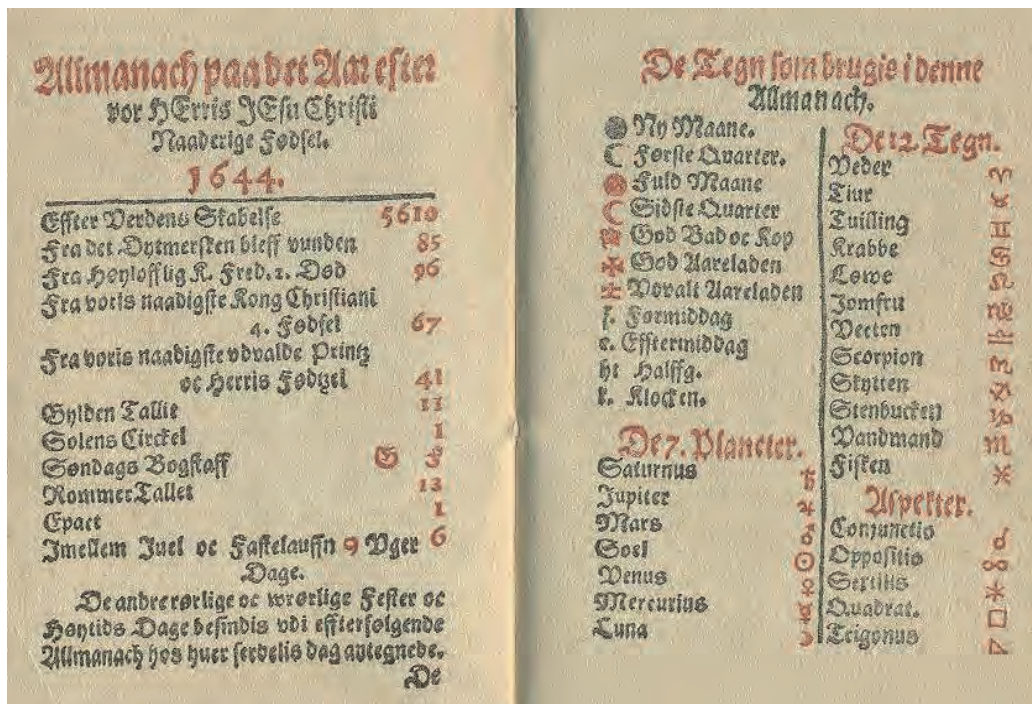 Allmanach paa det Aar efter
vor HErris JEsu Christi
Naaderige Fødsel.
1644.
Effter Verdens Skabelse 5610
Fra det Dytmersken bleff vunden 85
Fra Høylofflig K. Fred. 2. Død 96
Fra voris naadigste Kong Christiani
4. Fødsel 67
Fra voris naadigste vdvalde Printz
oc Herris Fødtzel 41
Gylden Tallit 11
Solens Circkel 1
Søndags Bogstaff G F
RommerTallet 13
Epact 1
Imellem Juel oc Fastelauffn 9 Vger 6
Dage.
De andre rørlige oc wrørlige Fester oc
Høytids Dage befindis vdi effterfølgende
Allmanach hos huer serdelis dag antegnede.
De
De Tegn som brugis i denne
Allmanach.
Ny Maane.
Første Quarter.
Fuld Maane
Sidste Quarter
God Bad oc Kop
God Aareladen
Vdvalt Aareladen
f. Formiddag
e. Efftermiddag
ht Halffg.
k. Klocken.
De 7. Planeter.
Saturnus ♄
Jupiter ♃
Mars ♂
Soel ☉
Venus ♀
Mercurius ☿
Luna ☽
De 12. Tegn.
Veder ♈
Tiur ♉
Tuilling ♊
Krabbe ♋
Løwe ♌
Jomfru
Vecten
Scorpion
Skytten
Stenbucken
Vandmand
Fisken
Aspekter.
Conjunctio ☌
Oppositio ☍
Sextilis ⚹
Quadrat. □
Trigonus